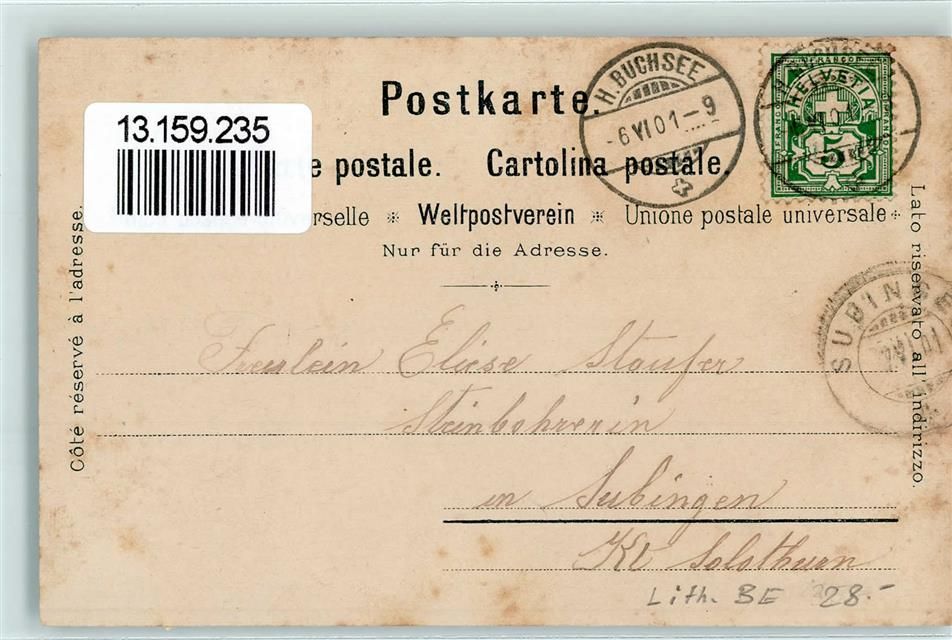 Postkarte.
13.159.235
e postale. Cartolina postale.
erselle * Weltpostverein * Unione postale universale
Nur für die Adresse.
Côté réservé à l'adresse.
Lato riservato all'indirizzo.
H. BUCHSEE
-6 VI 01-9
FRANCO
HELVETIA
5
SUBINGE
Fräulein Eliese Staufer
Steinbohrerin
in Subingen
Kt Solothurn
Lith. BE 28.-